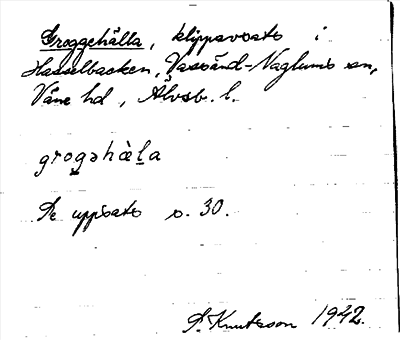 Groggehälla, klippavsats i
Hasselbacken, Vassänd-Naglums sn,
Väne hd, Älvsb. l.
grogəhàḷa
Se uppsats s. 30.
P. Knutsson 1942.